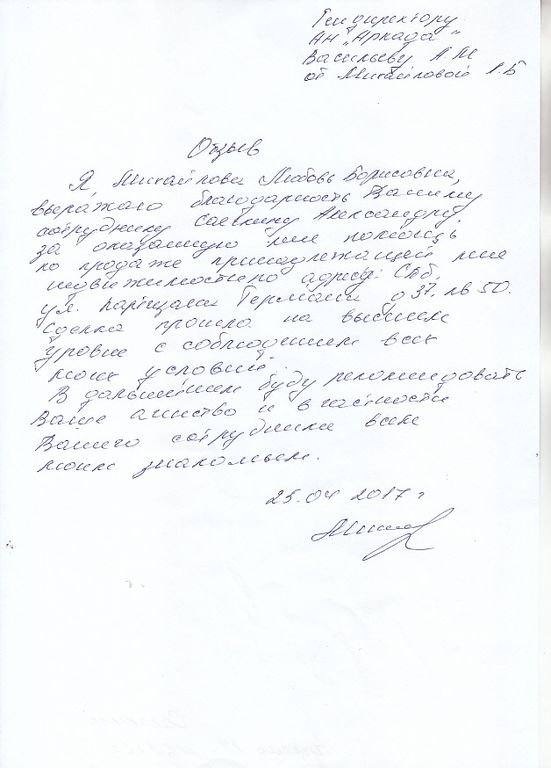 Гендиректору
АН "Аркада"
Васильеву А.М
от Михайловой Л.Б
Отзыв
Я, Михайлова Любовь Борисовна,
выражаю благодарность Вашему
сотруднику Саевкину Александру,
за оказанную мне помощь
по продаже принадлежащей мне
недвижимости по адресу: СПб.
ул. партизана Германа д 37. кв 50.
Сделка прошла на высшем
уровне с соблюдением всех
моих условий.
В дальнейшем буду рекомендовать
Ваше агнство и в частности
Вашего сотрудника всем
моим знакомым.
25.04 2017 г